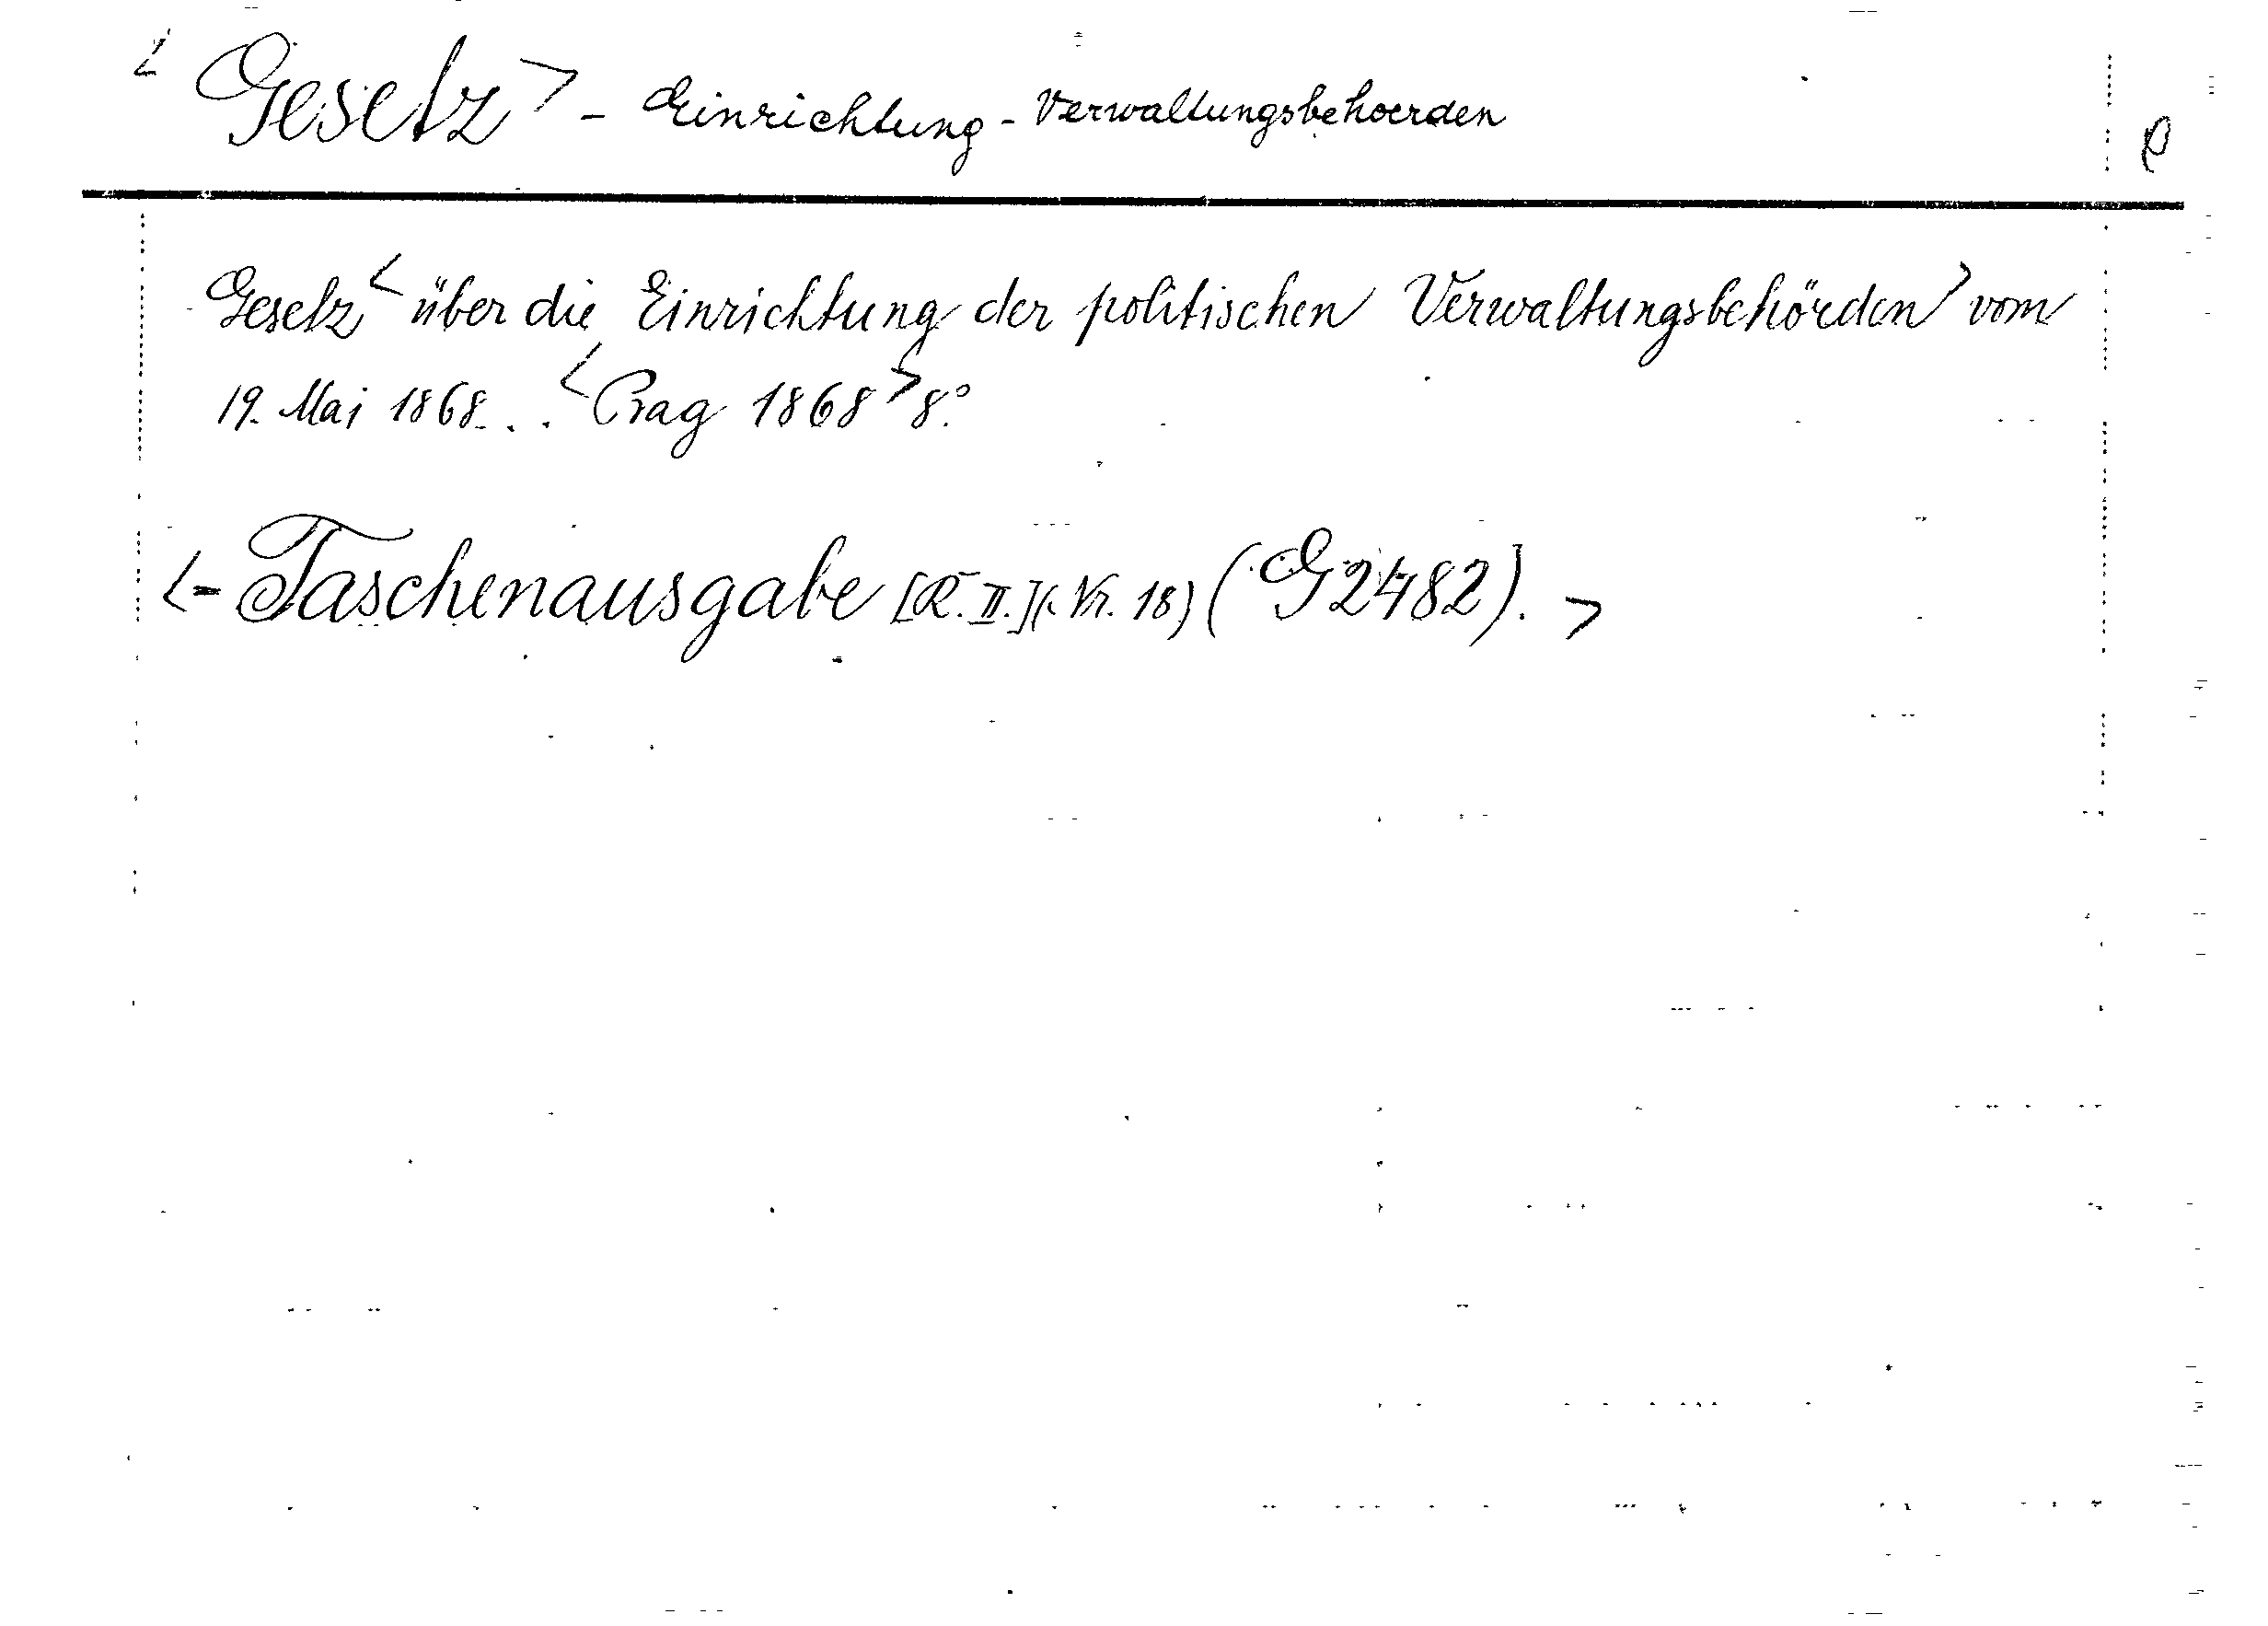 < Gesetz > - Einrichtung - Verwaltungsbehoerden
Gesetz < über die Einrichtung der politischen Verwaltungsbehörden > vom
19. Mai 1868... < Prag 1868 > 8°.
<- Taschenausgabe [R. II.] (Nr. 18) (G 2482). >